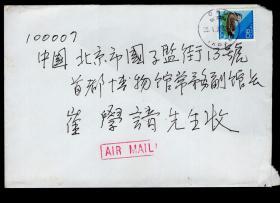 100007
中國 北京市國子監街13號
首都博物館常務副館長
崔學諳先生收
AIR MAIL